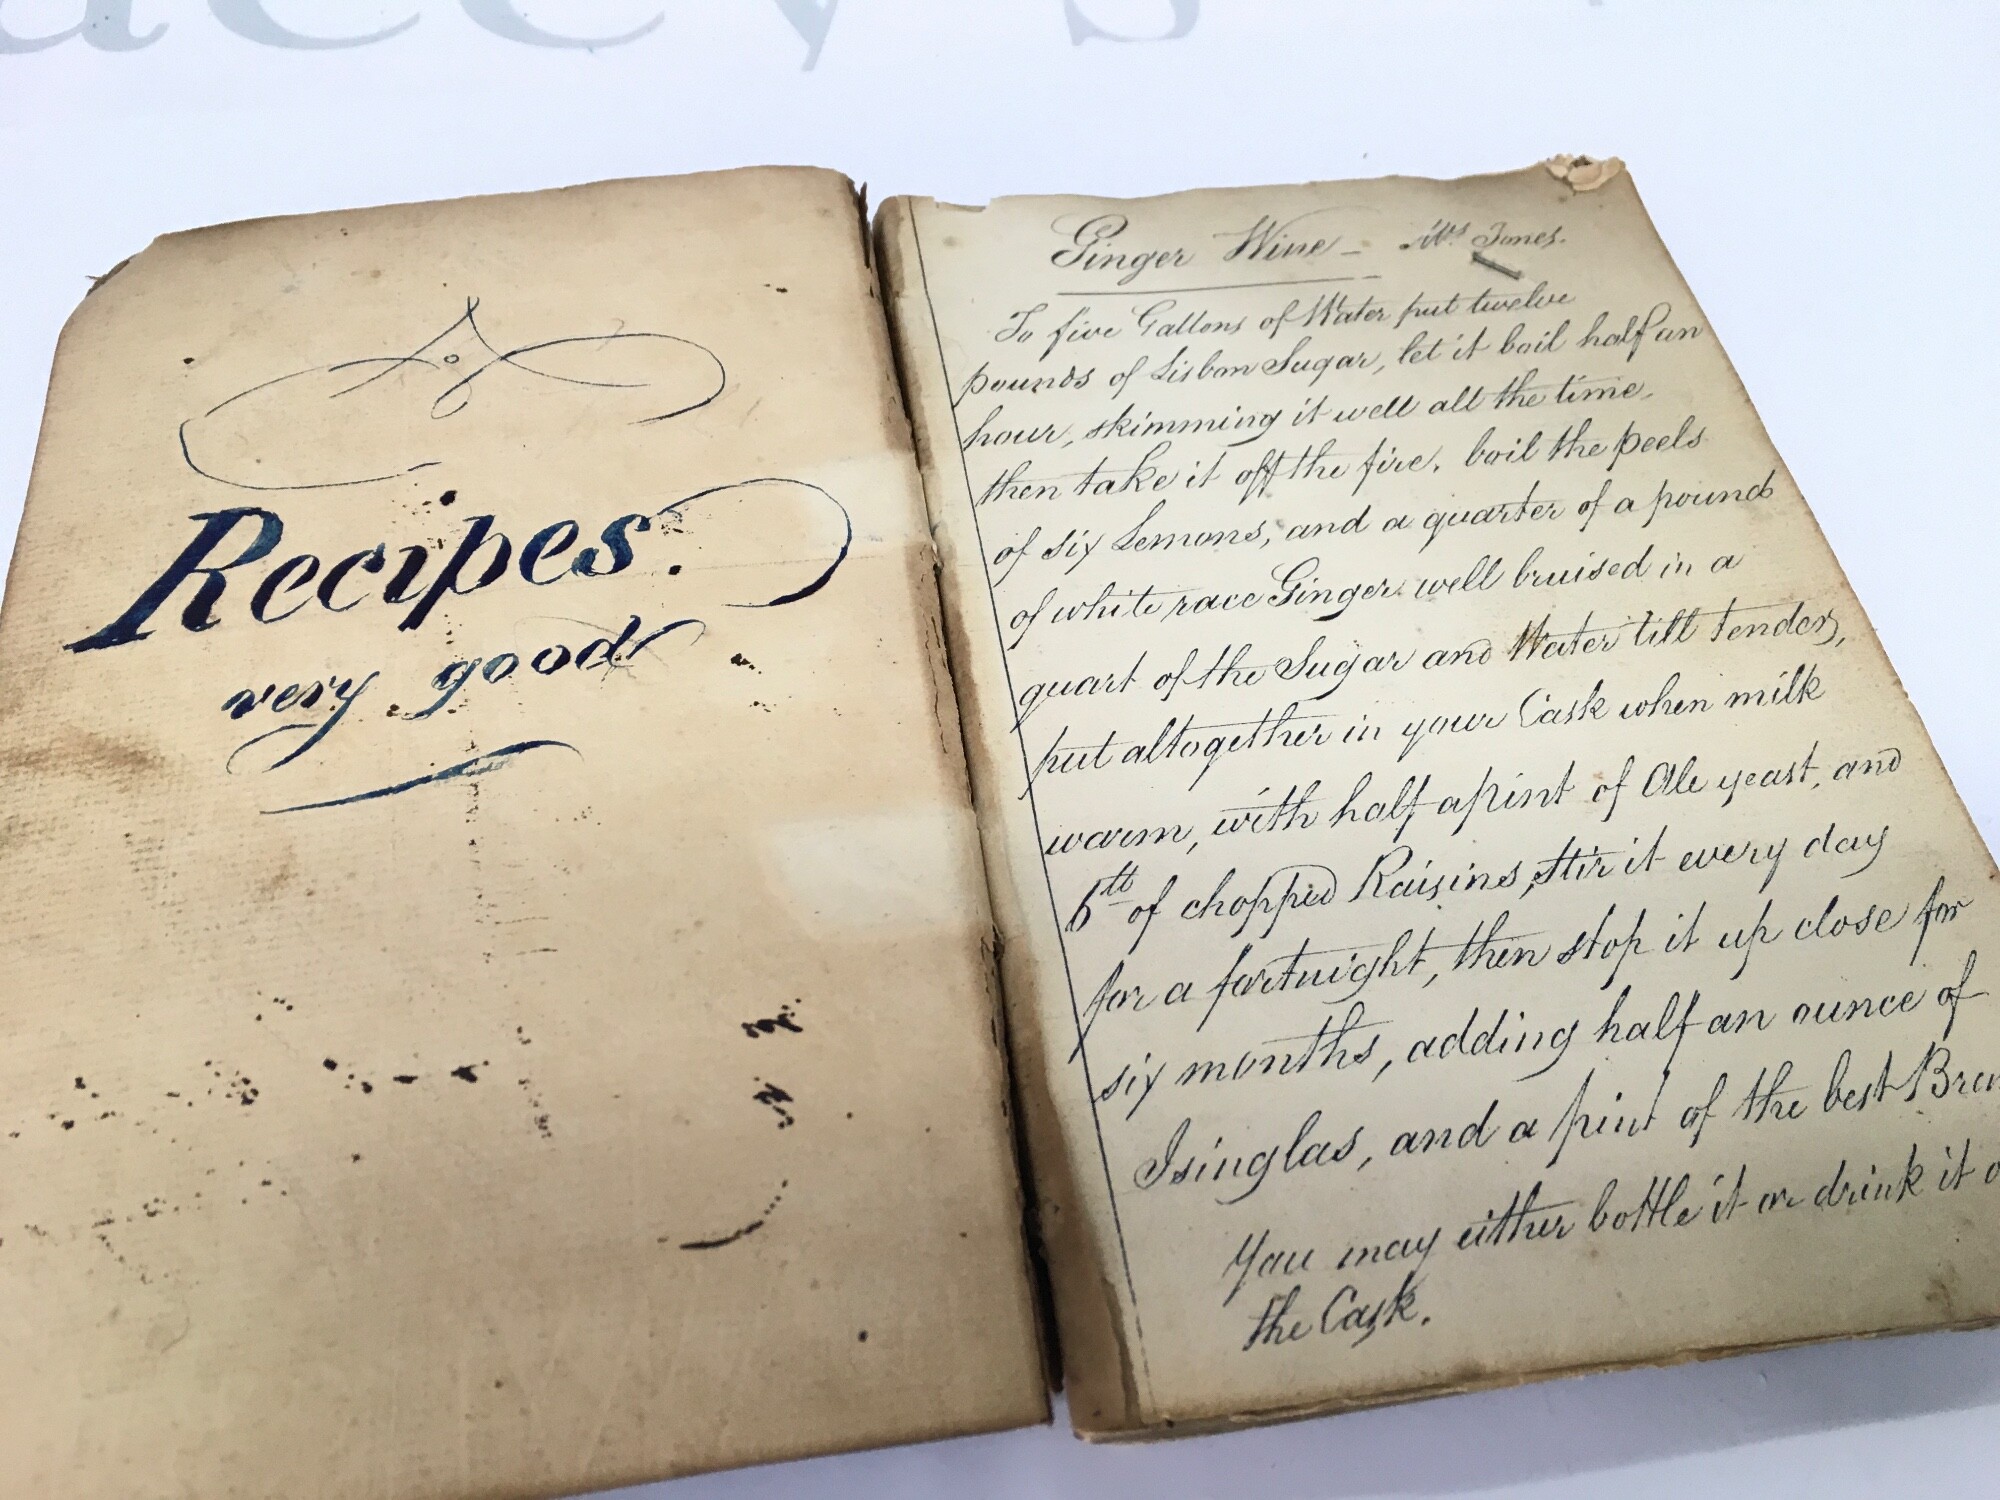 Recipes.
very good
Ginger Wine - Mrs Jones.
To five Gallons of Water put twelve
pounds of Lisbon Sugar, let it boil half an
hour, skimming it well all the time,
then take it off the fire. boil the peels
of six Lemons, and a quarter of a pound
of white race Ginger well bruised in a
quart of the Sugar and Water till tender,
put altogether in your Cask when milk
warm, with half a pint of Ale yeast, and
6 lb of chopped Raisins, stir it every day
for a fortnight, then stop it up close for
six months, adding half an ounce of
Isinglas, and a pint of the best
You may either bottle it or drink it
the Cask.